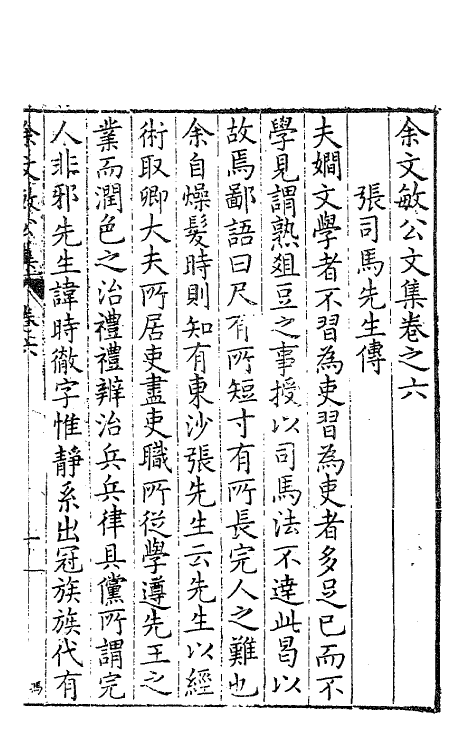 余文敏公文集卷之六
張司馬先生傳
夫嫺文學者不習為吏習為吏者多足已而不
學見謂熟爼豆之事授以司馬法不達此曷以
故焉鄙語曰尺有所短寸有所長完人之難也
余自燥髮時則知有東沙張先生云先生以經
術取卿大夫所居吏盡吏職所従學遵先王之
業而潤色之治禮禮辯治兵兵律具儻所謂完
人非邪先生諱時徹字惟靜系出冠族族代有
余文敏公集 卷六 一
馮